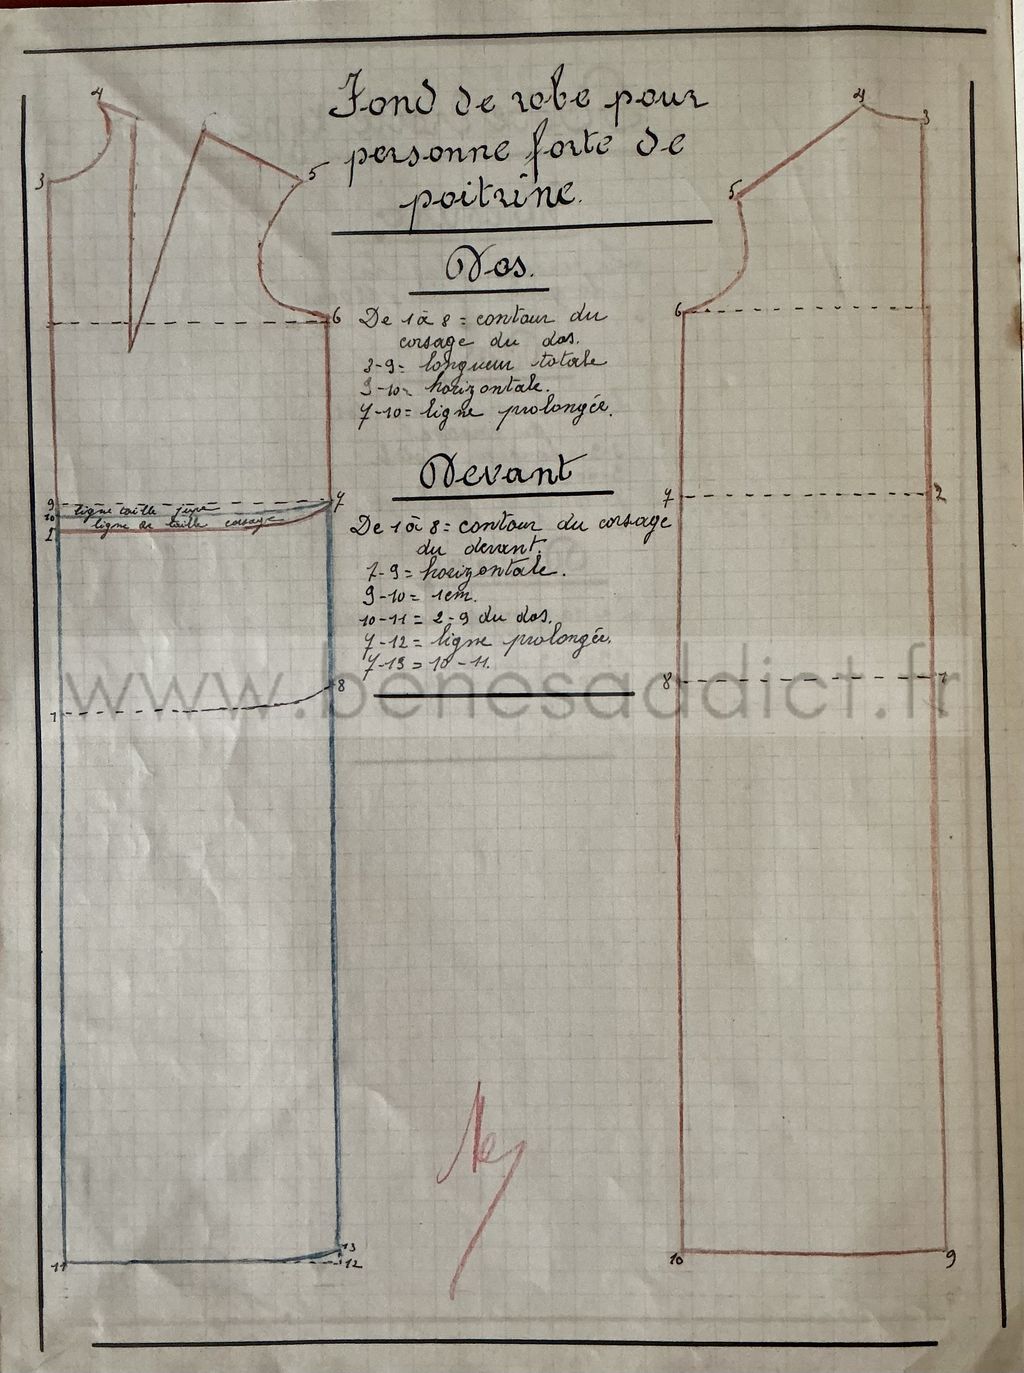 Fond de robe pour
personne forte de
poitrine.
Dos.
De 1 à 8 = contour du
corsage du dos.
3-9 = longueur totale
9-10 = horizontale.
7-10 = ligne prolongée.
Devant
De 1 à 8 = contour du corsage
du devant.
7-9 = horizontale.
9-10 = 1cm.
10-11 = 2-9 du dos.
7-12 = ligne prolongée.
7-13 = 10-11.
4
3
5
6
9
ligne taille jupe
7
10
ligne de taille corsage
2
8
1
11
13
12
4
3
5
6
7
2
8
1
10
9
www.benesaddict.fr